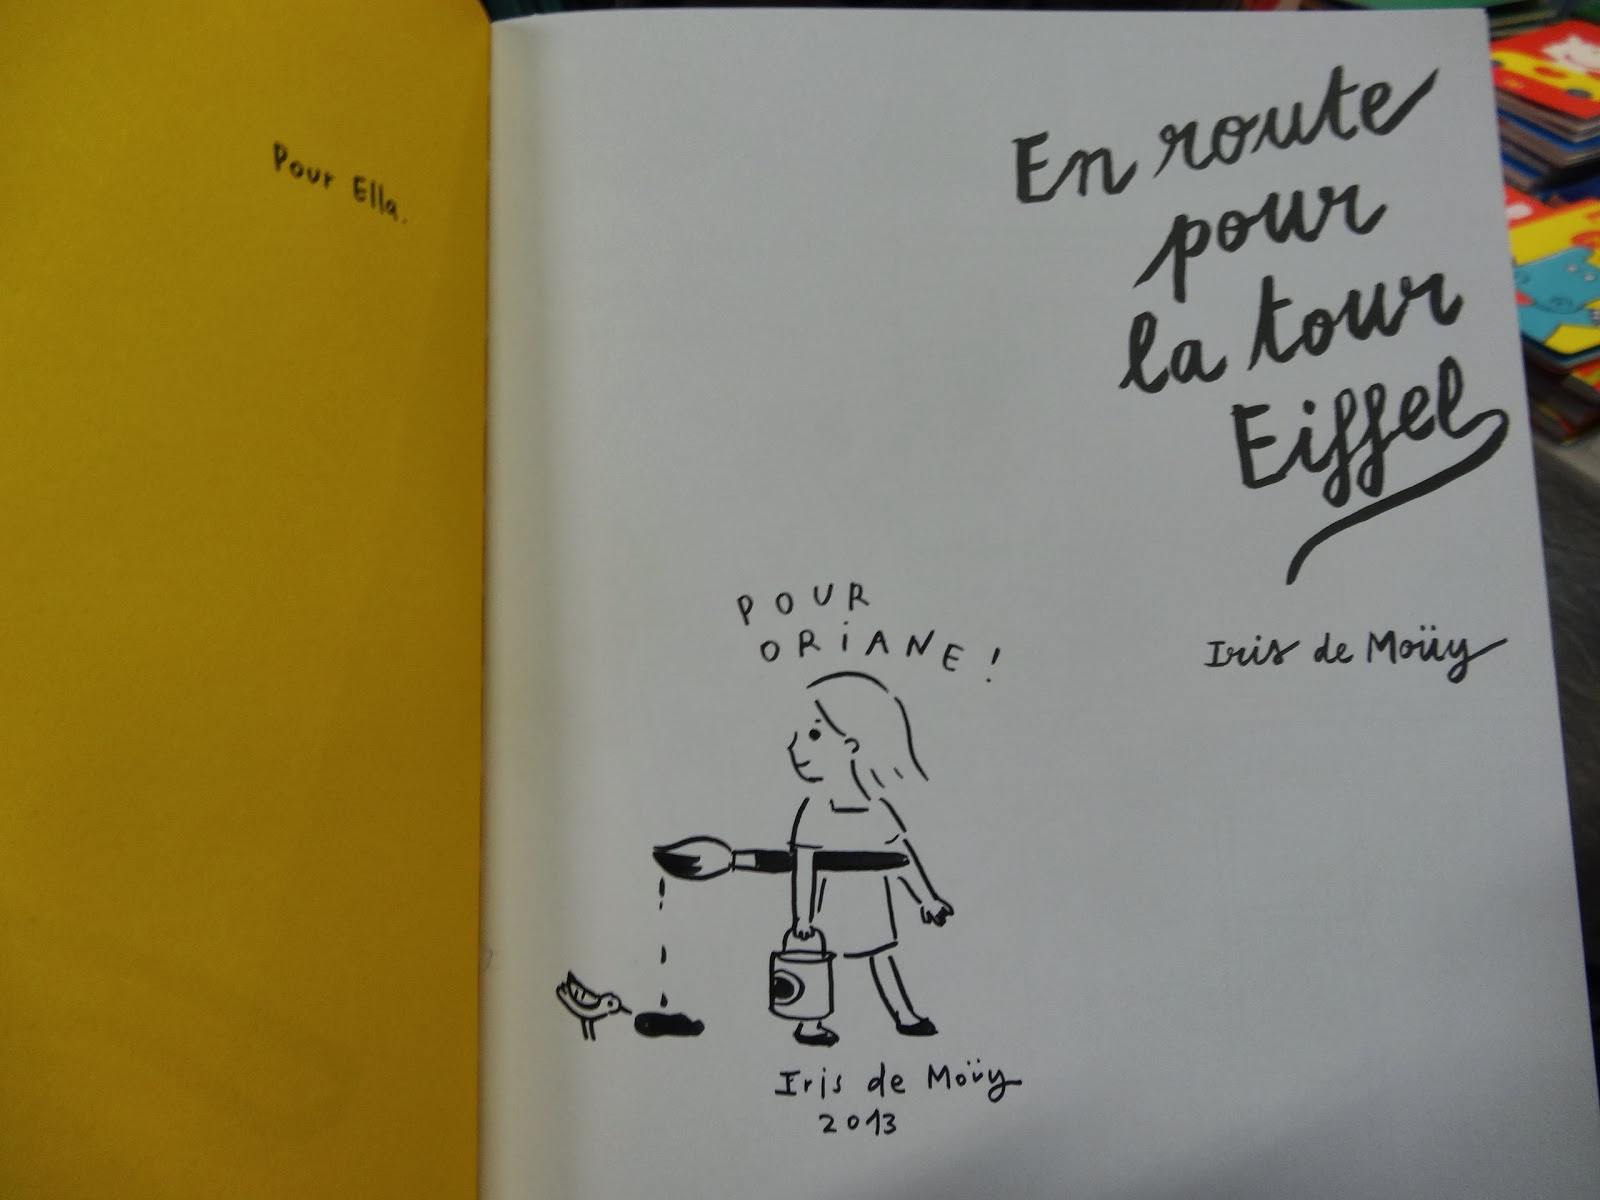 Pour Ella.
En route
pour
la tour
Eiffel
Iris de Moüy
POUR
ORiANE !
Iris de Moüy
2013